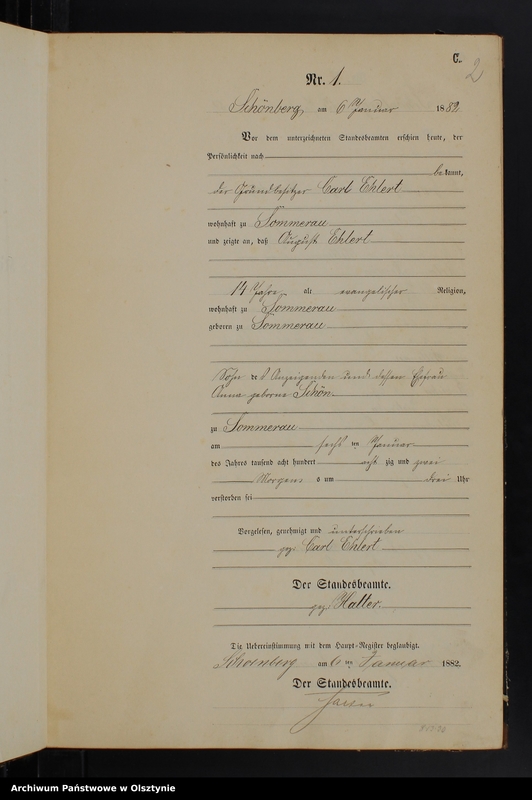 C.
2
Nr. 1.
Schönberg, am 6 Januar 1882
Vor dem unterzeichneten Standesbeamten erschien heute, der
Persönlichkeit nach
bekannt,
der Grundbesitzer Carl Ehlert
wohnhaft zu Sommerau
und zeigte an, daß August Ehlert
14 Jahre alt evangelischer Religion,
wohnhaft zu Sommerau
geboren zu Sommerau
Sohn des Anzeigenden und dessen Ehefrau
Anna geborne Schön
zu Sommerau
am sechs ten Januar
des Jahres tausend acht hundert acht zig und zwei
Morgens um drei Uhr
verstorben sei
Vorgelesen, genehmigt und unterschrieben
gez. Carl Ehlert
Der Standesbeamte.
gez. Halter.
Die Uebereinstimmung mit dem Haupt-Register beglaubigt.
Schoenberg am 6 ten Januar 1882.
Der Standesbeamte.
Archiwum Państwowe w Olsztynie